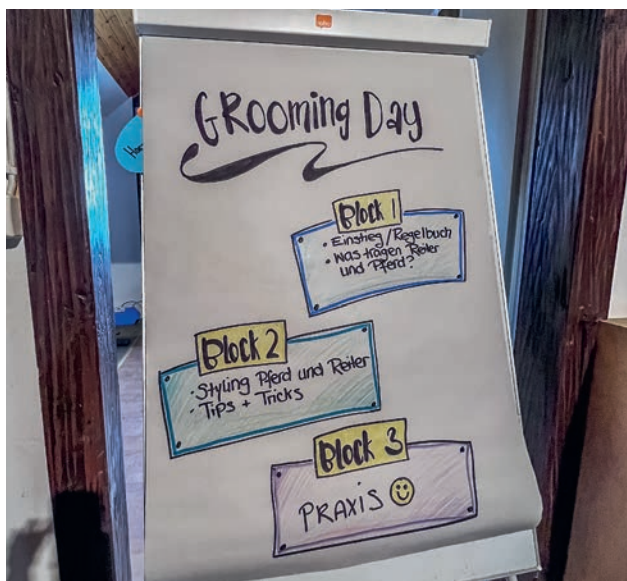 Grooming Day
Block 1
• Einstieg/Regelbuch
• Was tragen Reiter
und Pferd?
Block 2
• Styling Pferd und Reiter
• Tips + Tricks
Block 3
PRAXIS ☺